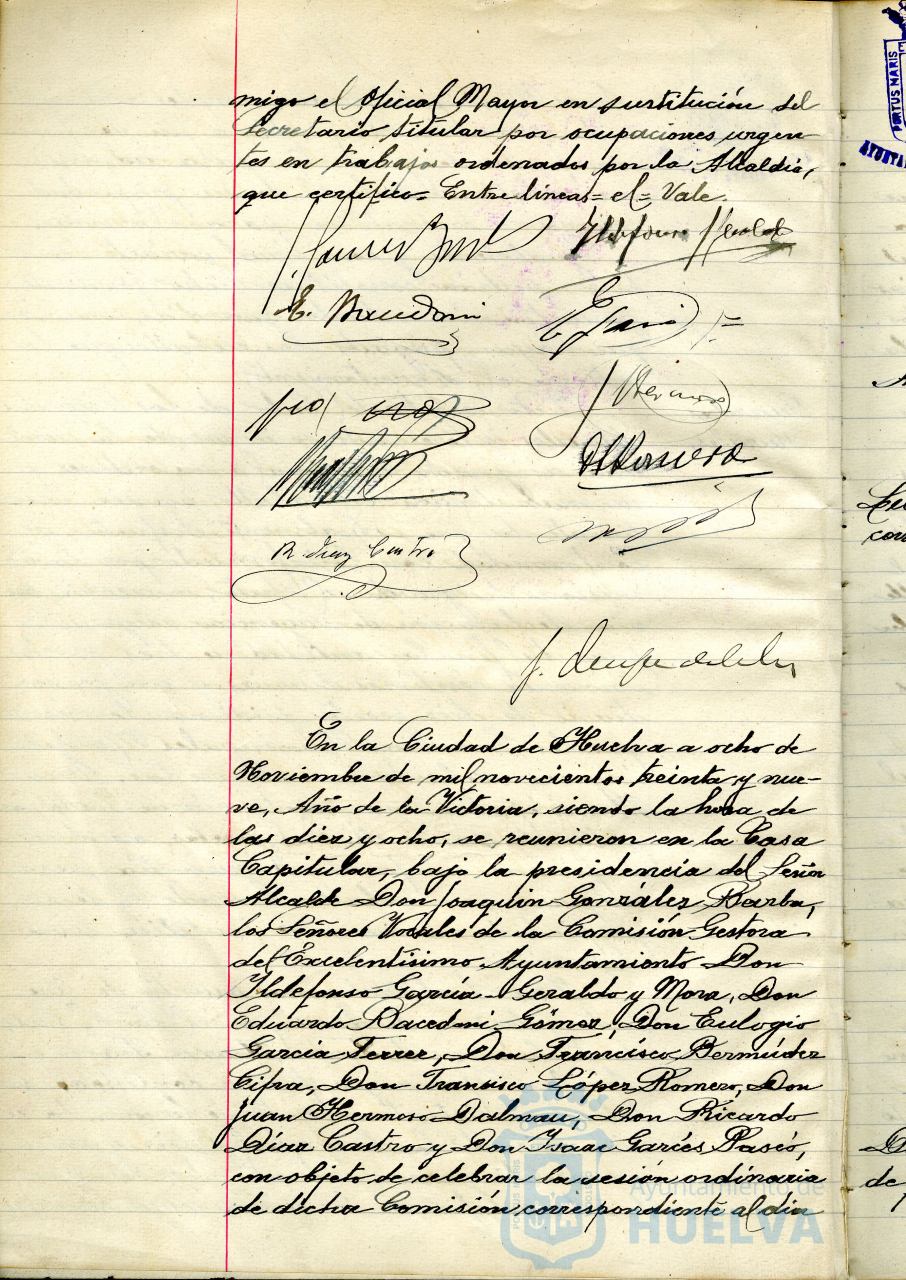 migo el Oficial Mayor en sustitución del
Secretario titular por ocupaciones urgen-
tes en trabajos ordenados por la Alcaldía,
que certifico= Entre lineas= el= Vale.
E. Bacedoni
J. Hermoso
R. Díaz Castro
En la Ciudad de Huelva a ocho de
Noviembre de mil novecientos treinta y nue-
ve, Año de la Victoria, siendo la hora de
las diez y ocho, se reunieron en la Casa
Capitular, bajo la presidencia del Señor
Alcalde Don Joaquin González Barba,
los Señores Vocales de la Comisión Gestora
del Excelentísimo Ayuntamiento Don
Ildefonso García-Geraldo y Mora, Don
Eduardo Bacedoni Gómez, Don Eulogio
García Ferrer, Don Francisco Bermúdez
Cifra, Don Francisco López Romero, Don
Juan Hermoso Dalmau, Don Ricardo
Díaz Castro y Don Isaac Garcés Pascó,
con objeto de celebrar la sesión ordinaria
de dicha Comisión correspondiente al día
PORTUS MARIS
Ayuntamiento de
HUELVA